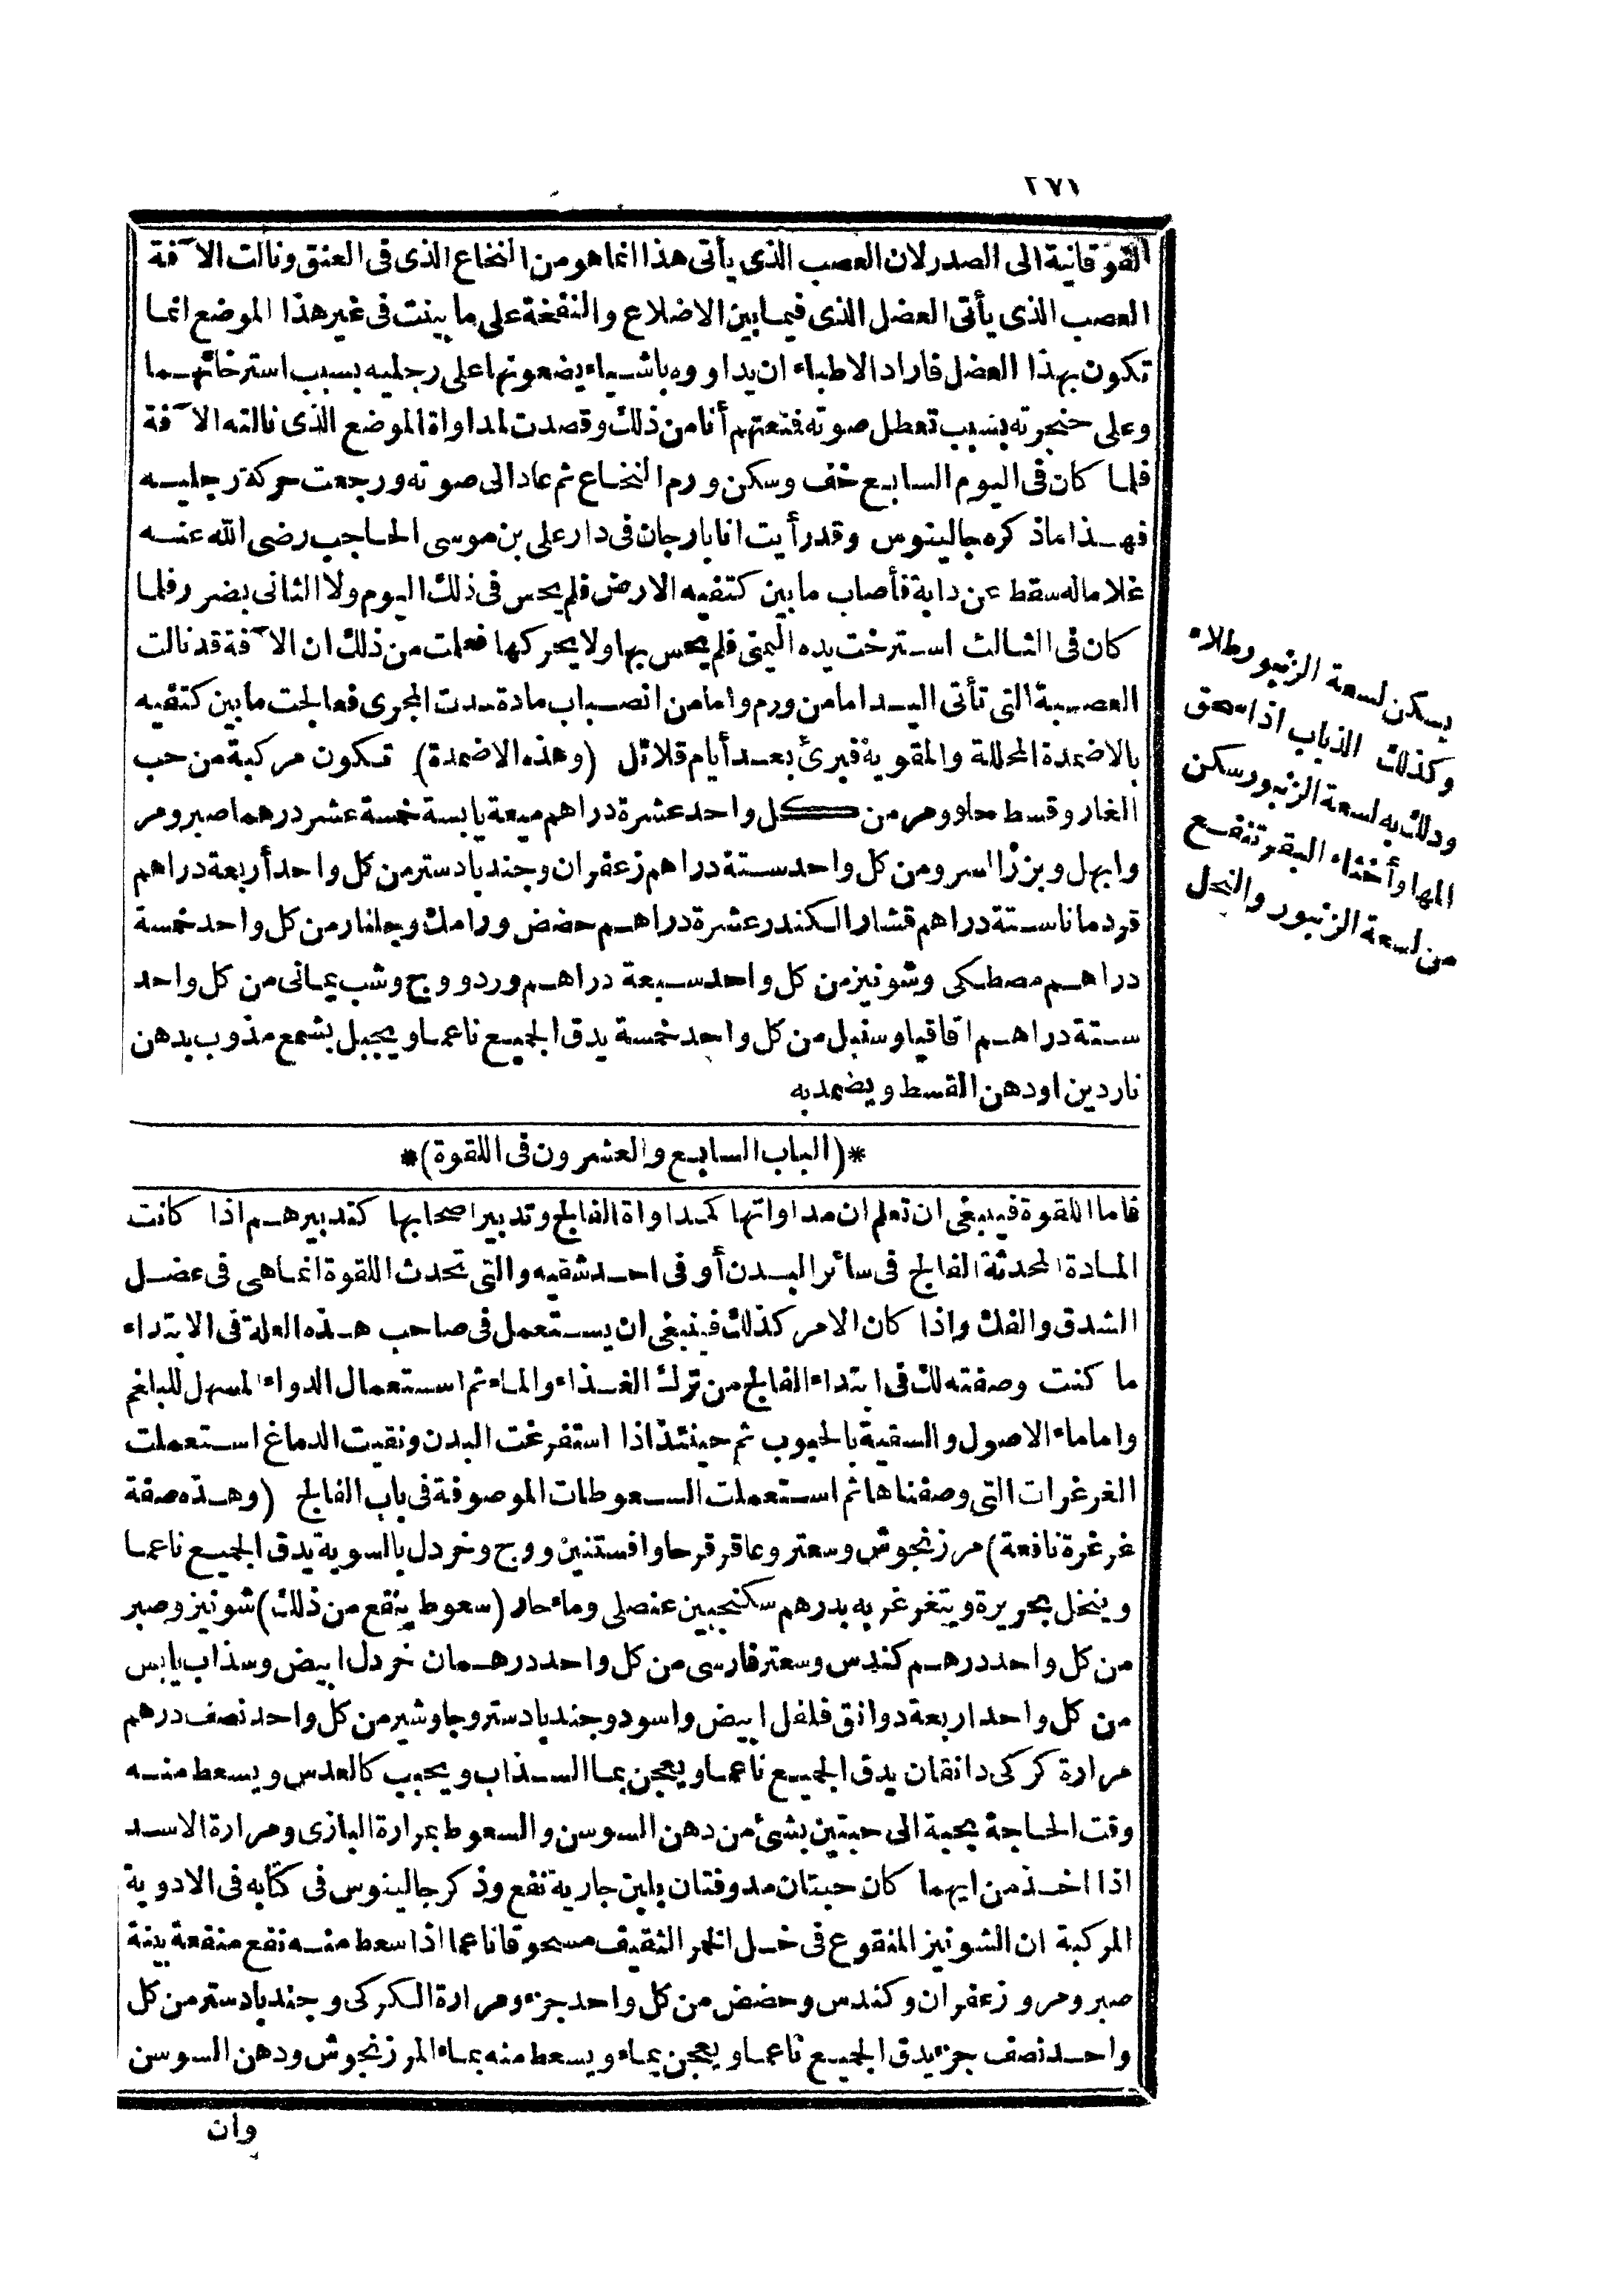 ٢٧١
الفوقانية الى الصدر لان العصب الذى يأتى هذا انما هو من النخاع الذى فى العنق ونالت الآفة
العصب الذى يأتى العضل الذى فيما بين الاضلاع والنفخة على ما بينت فى غير هذا الموضع انما
تكون بهذا العضل فاراد الاطباء ان يداووه باشياء يضعونها على رجليه بسبب استرخائهما
وعلى حنجرته بسبب تعطل صوته فمنعتهم أنا من ذلك وقصدت لمداواة الموضع الذى نالته الآفة
فلما كان فى اليوم السابع خف وسكن ورم النخاع ثم عاد الى صوته ورجعت حركة رجليه
فهذا ماذكره جالينوس وقد رأيت انا بارجان فى دار على بن موسى الحاجب رضى الله عنه
غلاما له سقط عن دابة فأصاب مابين كتفيه الارض فلم يحس فى ذلك اليوم ولا الثانى بضرر فلما
كان فى الثالث استرخت يده اليمنى فلم يحس بها ولا يحركها فعلمت من ذلك ان الآفة قد نالت
العصبة التى تأتى اليد اما من ورم واما من انصباب مادة سدت المجرى فعالجت مابين كتفيه
بالاضمدة المحللة والمقوية فبرئ بعد أيام قلائل (وهذه الاضمدة) تكون مركبة من حب
الغار وقسط حلو ومر من كل واحد عشرة دراهم ميعة يابسة خمسة عشر درهما صبر ومر
وابهل وبزر السرو من كل واحد ستة دراهم زعفران وجندبادستر من كل واحد أربعة دراهم
قردمانا ستة دراهم قشار الكندر عشرة دراهم حضض ورامك وجلنار من كل واحد خمسة
دراهم مصطكى وشونيز من كل واحد سبعة دراهم ورد ووج وشب يمانى من كل واحد
ستة دراهم اقاقيا وسنبل من كل واحد خمسة يدق الجميع ناعما ويجبل بشمع مذوب بدهن
ناردين او دهن القسط ويضمد به
*(الباب السابع والعشرون فى اللقوة)*
فاما اللقوة فينبغى ان تعلم ان مداواتها كمداواة الفالج وتدبير اصحابها كتدبيرهم اذا كانت
المادة المحدثة الفالج فى سائر البدن أو فى احد شقيه والتى تحدث اللقوة انما هى فى عضل
الشدق والفك واذا كان الامر كذلك فينبغى ان يستعمل فى صاحب هذه العلة فى الابتداء
ما كنت وصفته لك فى ابتداء الفالج من ترك الغذاء والماء ثم استعمال الدواء المسهل للبلغم
واما ماء الاصول والسقية بالحبوب ثم حينئذ اذا استفرغت البدن ونقيت الدماغ استعملت
الغرغرات التى وصفناها ثم استعملت السعوطات الموصوفة فى باب الفالج (وهذه صفة
غرغرة نافعة) مرزنجوش وسعتر وعاقرقرحا وافسنتين ووج وخردل بالسوية يدق الجميع ناعما
وينخل بحريرة ويتغرغر به بدرهم سكنجبين عنصلى وماء حار (سعوط ينفع من ذلك) شونيز وصبر
من كل واحد درهم كندس وسعتر فارسى من كل واحد درهمان خردل ابيض وسذاب يابس
من كل واحد اربعة دوانق فلفل ابيض واسود وجندبادستر وجاوشير من كل واحد نصف درهم
مرارة كركى دانقان يدق الجميع ناعما ويعجن بما السذاب ويحبب كالعدس ويسعط منه
وقت الحاجة بحبة الى حبتين بشئ من دهن السوسن والسعوط بمرارة البازى ومرارة الاسد
اذا اخذ من ايهما كان حبتان مدوفتان بلبن جارية نفع وذكر جالينوس فى كتابه فى الادوية
المركبة ان الشونيز المنقوع فى خل الخمر الثقيف مسحوقا ناعما اذا سعط منه نفع منفعة بينة
صبر ومر وزعفران وكندس وحضض من كل واحد جزء ومرارة الكركى وجندبادستر من كل
واحد نصف جزء يدق الجميع ناعما ويعجن بماء ويسعط منه بماء المرزنجوش ودهن السوسن
وان
يسكن لسعة الزنبور طلاء
وكذلك الذباب اذا سحق
ودلك به لسعة الزنبور سكن
المها وأخثاء البقر تنفع
من لسعة الزنبور والنحل